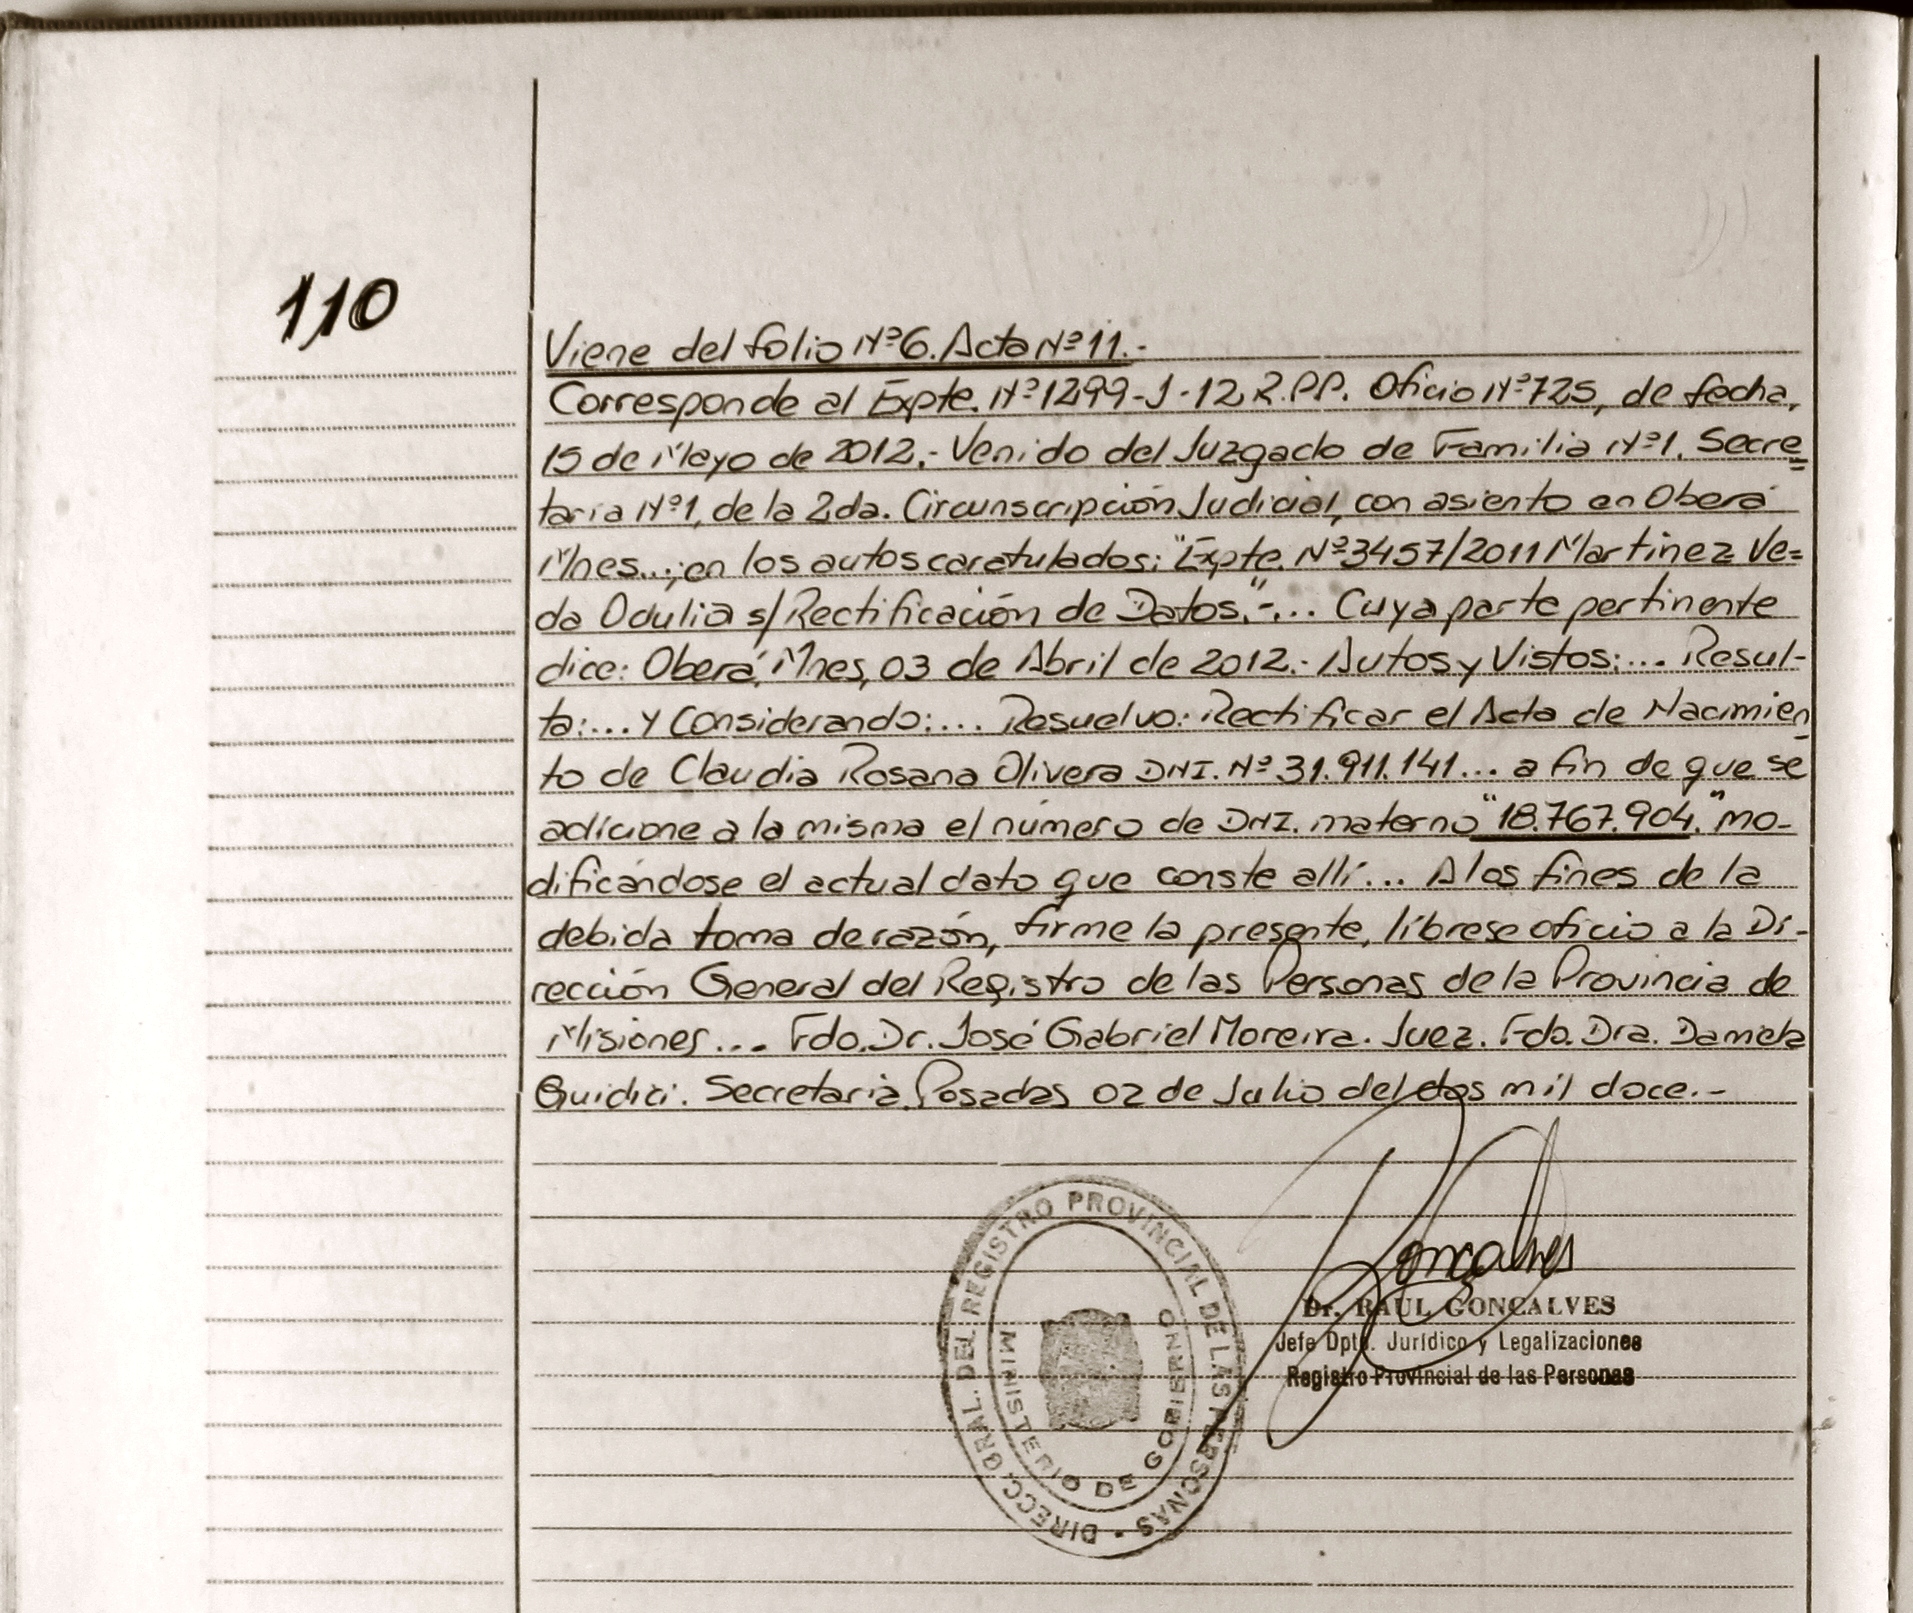 110
Viene del folio Nº6. Acta Nº11.-
Corresponde al Expte. Nº1299-J-12 R.P.P. Oficio Nº725, de fecha,
15 de Mayo de 2012.- Venido del Juzgado de Familia Nº1. Secre=
taria Nº1, de la 2da. Circunscripción Judicial, con asiento en Oberá
Mnes...; en los autos caratulados: "Expte. Nº3457/2011 Martinez Ve=
da Odulia s/Rectificación de Datos."-... Cuya parte pertinente
dice: Oberá, Mnes, 03 de Abril de 2012.- Autos y Vistos:... Resul-
ta:... y Considerando:... Resuelvo: Rectificar el Acta de Nacimien-
to de Claudia Rosana Olivera DNI. Nº 31.911.141... a fin de que se
adicione a la misma el número de DNI. materno "18.767.904." mo-
dificándose el actual dato que conste allí... A los fines de la
debida toma de razón, firme la presente, líbrese oficio a la Di-
rección General del Registro de las Personas de la Provincia de
Misiones... Fdo. Dr. José Gabriel Moreira. Juez. Fdo. Dra. Daniela
Guidici. Secretaria. Posadas 02 de Julio del dos mil doce.-
DIRECC. GRAL. DEL REGISTRO PROVINCIAL DE LAS PERSONAS •
MINISTERIO DE GOBIERNO
Goncalves
Dr. RAUL GONCALVES
Jefe Dpto. Jurídico y Legalizaciones
Registro Provincial de las Personas